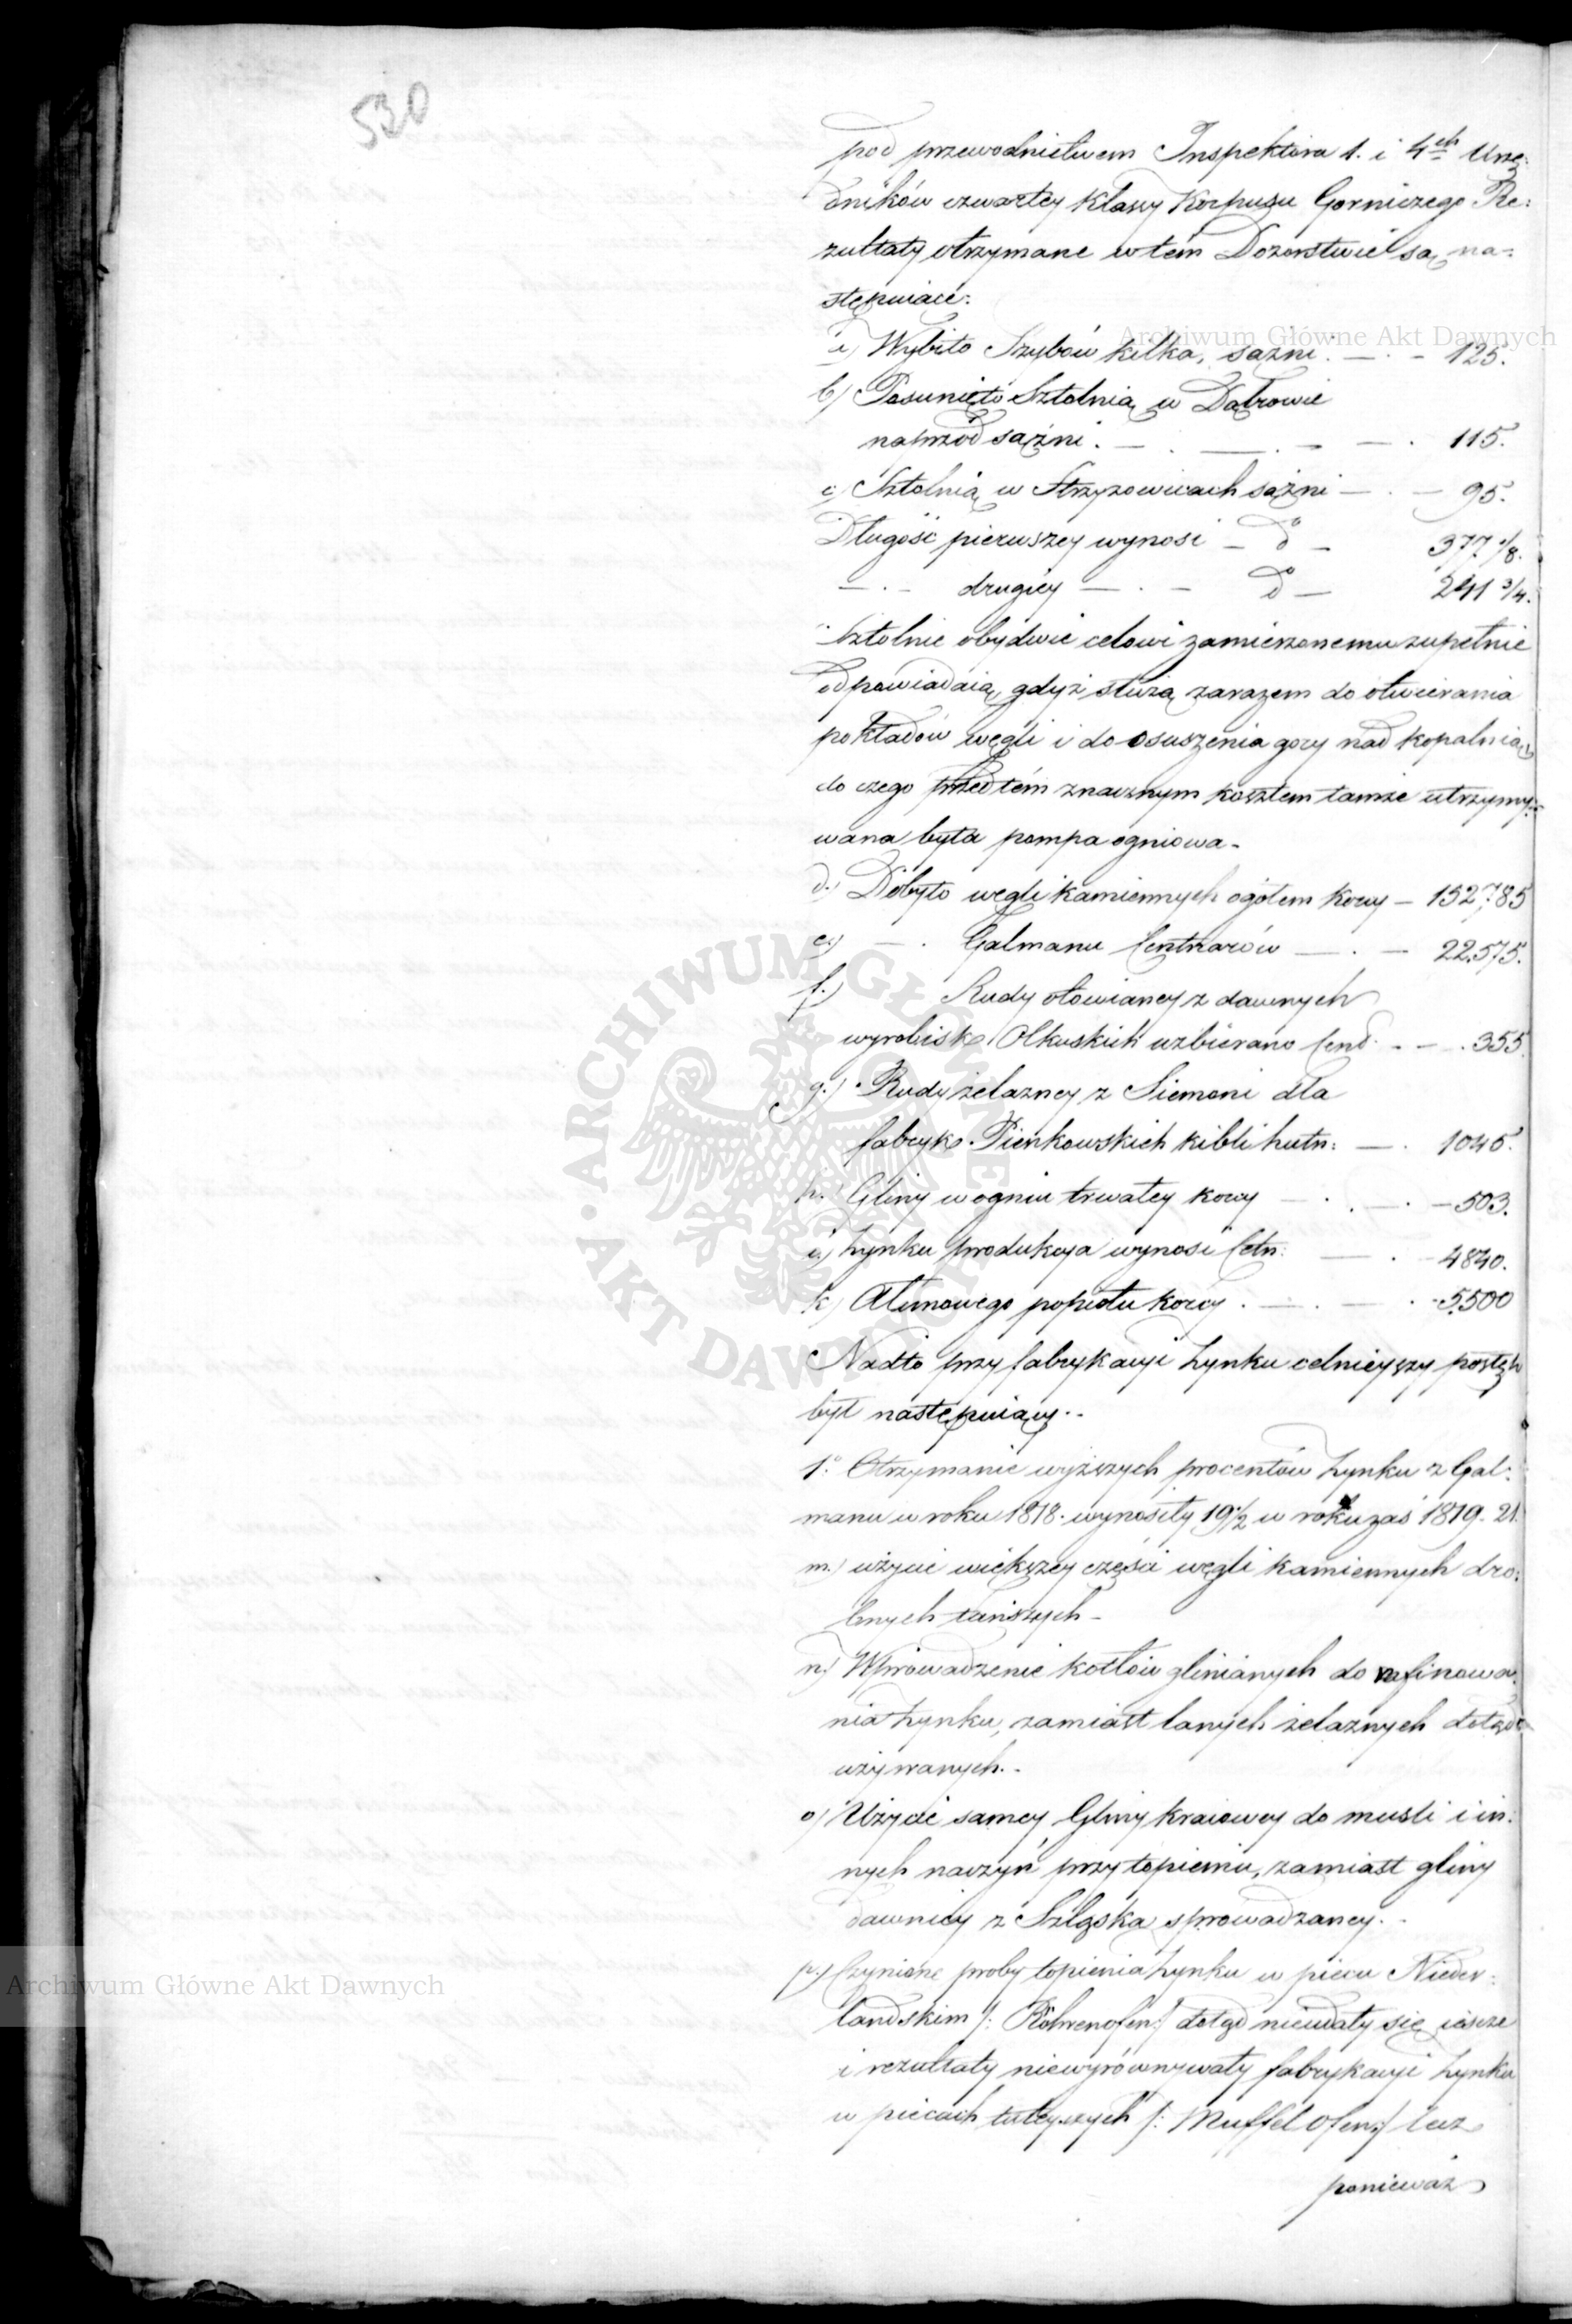 530
pod przewodnictwem Inspektora 1. i 4ch Urzę:
dników czwartey klassy Korpusu Gorniczego Re:
zultaty otrzymane w tém Dozorstwie są na:
stępuiące:
a) Wybito Szybów kilka, sążni. — . — 125.
b) Posunięto Sztolnią w Dąbrowie
naprzod sążni. — . — . — — . 115.
c) Sztolnią w Strzyzowicach sążni — . — 95.
Długość pierwszey wynosi — do — 377 1/8.
— . — drugiey — . — do — 241 3/4.
Sztolnie obydwie celowi zamierzonemu zupełnie
odpowiadaią, gdyż służą zarazem do otwierania
pokładów węgli i do osuszenia gory nad kopalnią,
do czego przedtém znacznym kosztem tamże utrzymy:
wana była pompa ogniowa.
d.) Dobyto węgli kamiennych ogółem korcy — 152,785
e.) — . Galmanu Centnarów — . — 22,575.
f.) Rudy ołowianey z dawnych
wyrobisk Olkuskich uzbierano Cend. . — . 355.
g.) Rudy żelazney z Siemoni dla
fabryk Pieńkowskich kibli hutn: — . 1045.
h.) Gliny w ogniu trwałey korcy — . . — . — 503.
i.) Zynku produkcya wynosi Cetn: — . — 4840.
k) Ałunowego popiołu korcy . — . — . 5,500
Nadto przy fabrykacyi Zynku celnieyszy postęp
był następuiący. .
1o. Otrzymanie wyższych procentów Zynku z Gal:
manu w roku 1818. wynosiły 19 1/2 w roku zaś 1819. 21.
m.) użycie większey części węgli kamiennych dro:
bnych tańszych —
n.) Wprowadzenie kotłów glinianych do rafinowa:
nia Zynku, zamiast lanych żelaznych dotąd
używanych. .
o) Użycie samey Gliny kraiowey do mufli i in:
nych naczyń przy topieniu, zamiast gliny
dawniey z Szląska sprowadzaney. .
p.) Czynione proby topienia Zynku w piecu Nieder:
landskim /: Röhrenofen :/ dotąd nieudały się ieszcze
i rezultaty niewyrównywały fabrykacyi Zynku
w piecach tuteyszych /: Muffel Ofen :/ lecz
ponieważ
Archiwum Główne Akt Dawnych
ARCHIWUM GŁÓWNE • AKT DAWNYCH •
Archiwum Główne Akt Dawnych